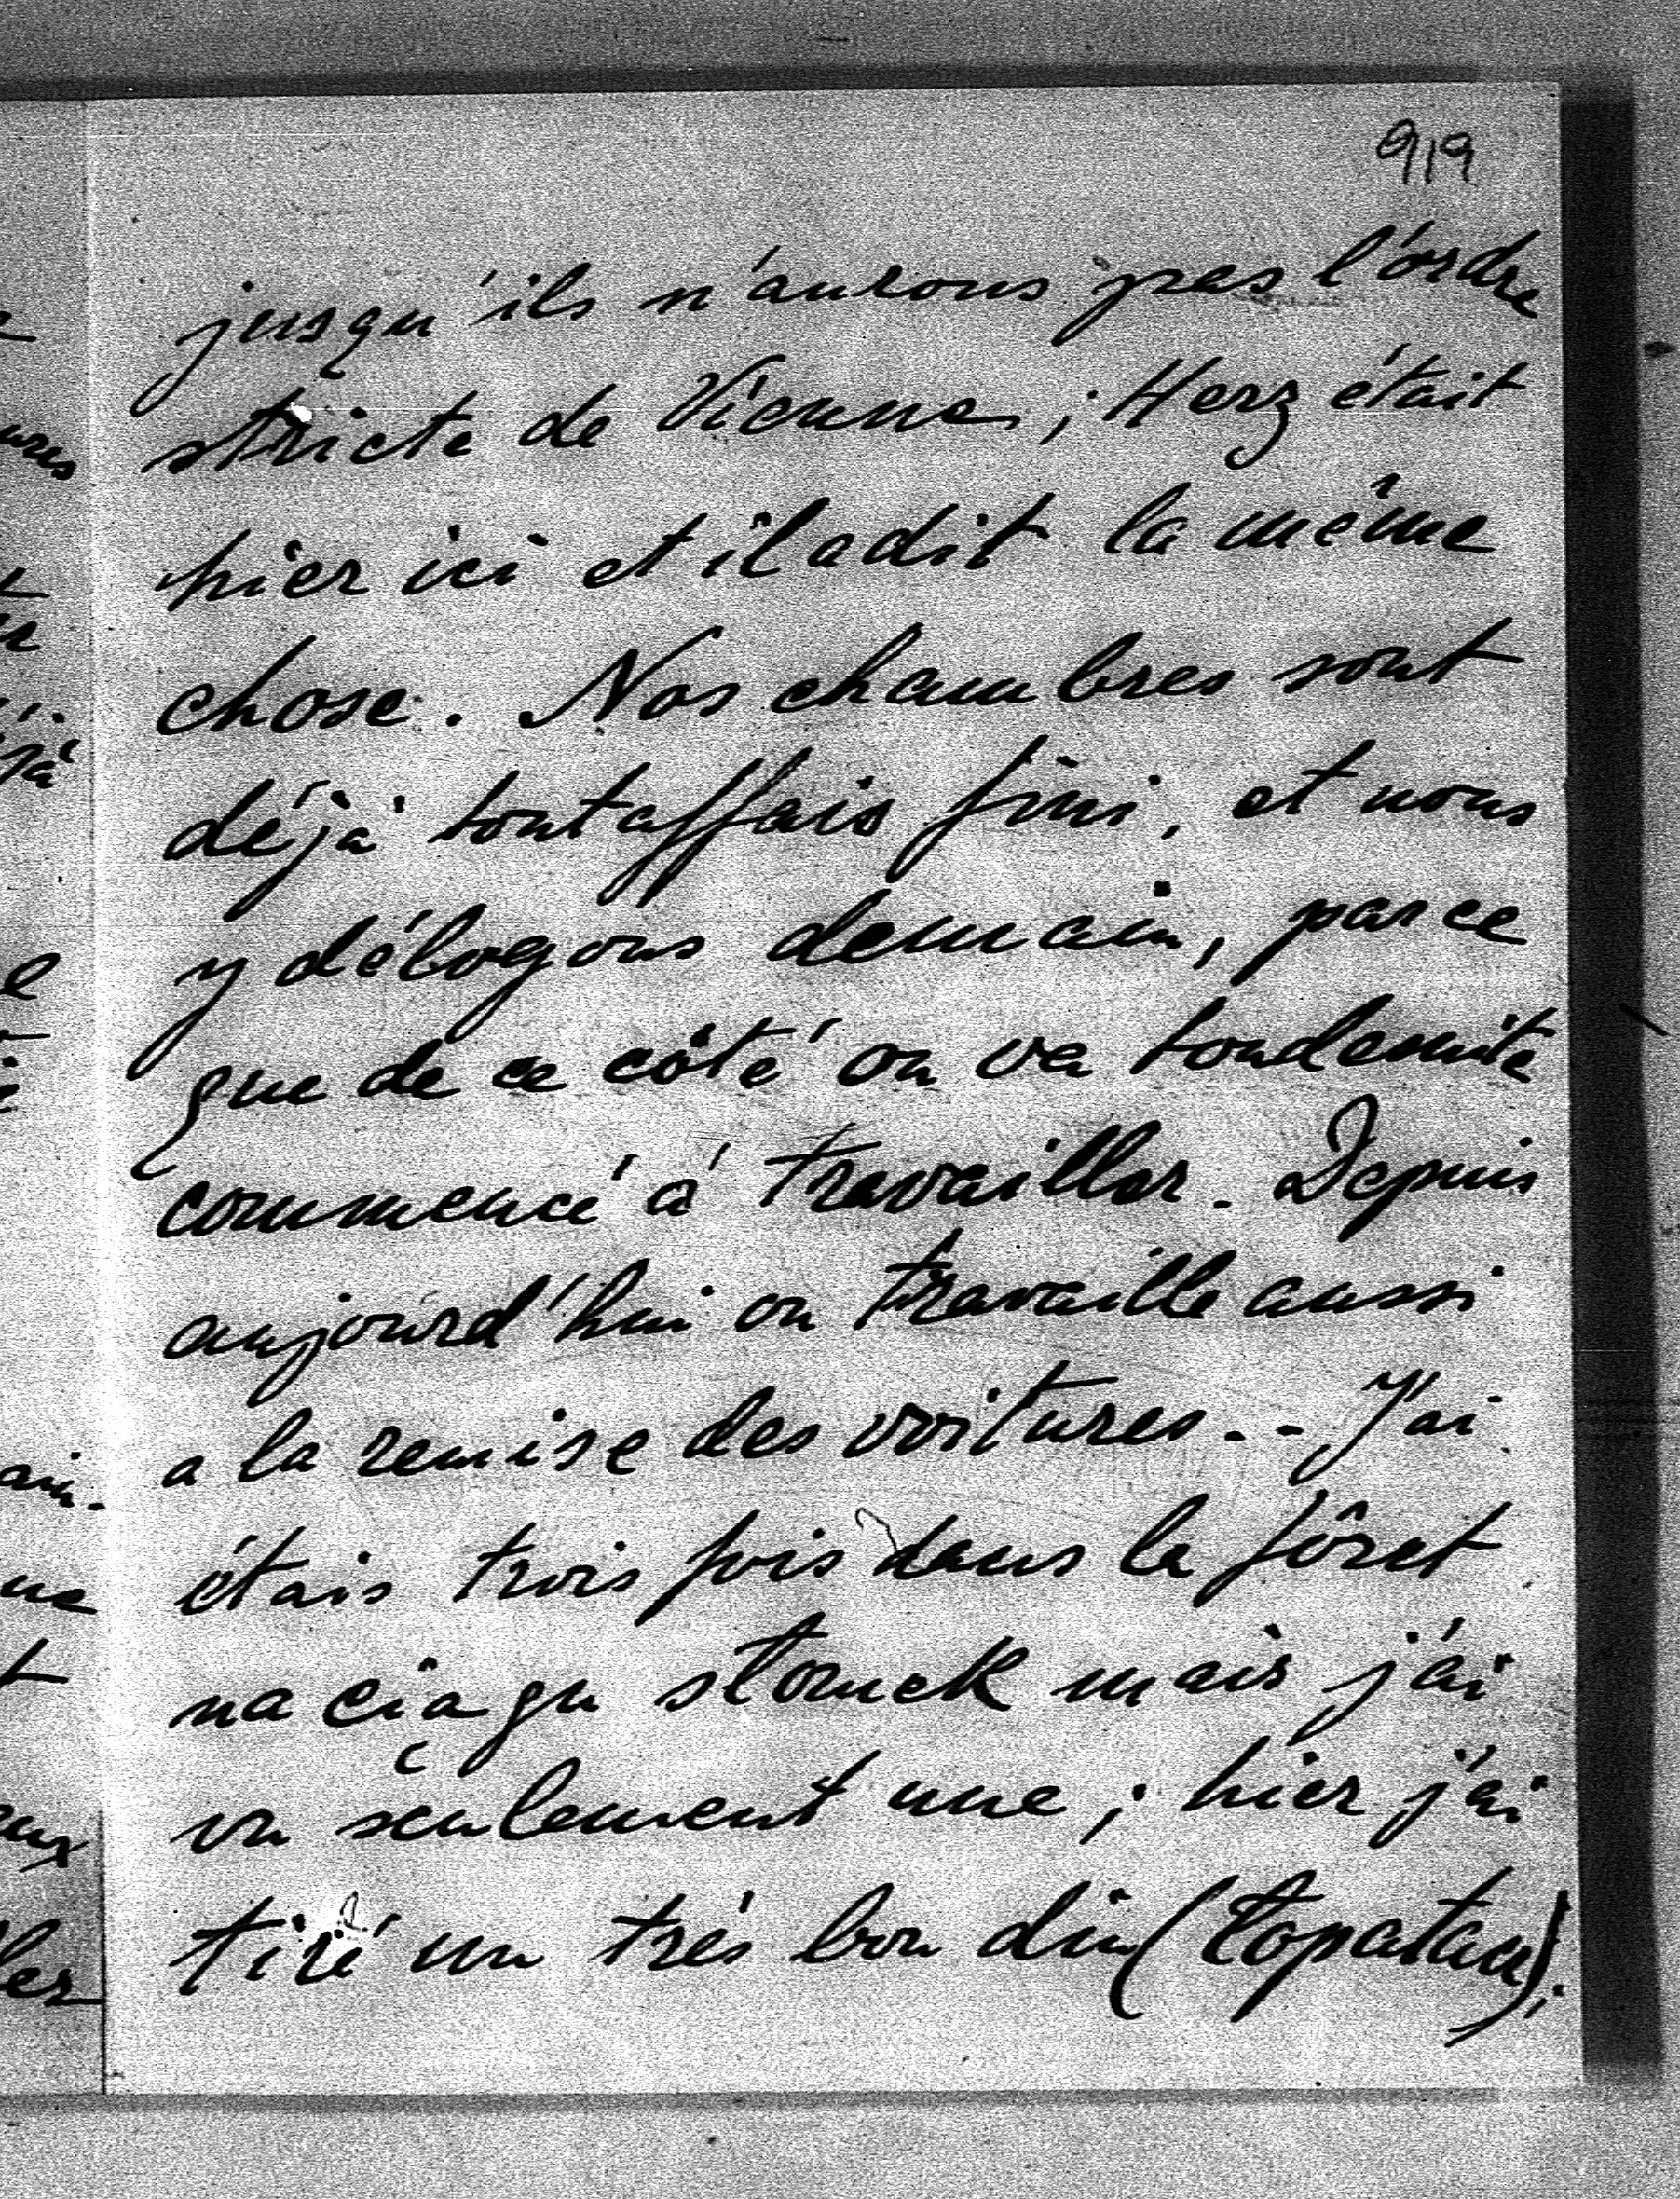 919
jusqu'ils n'aurons pas l'ordre
stricte de Vienne ; Herz était
hier ici et il a dit la même
chose. Nos chambres sont
déjà toutaffais fini, et nous
y délogons demain, parce
que de ce côté on va toudesuite
commencé à travailler. Depuis
aujourd'hui on travaille aussi
a la remise des voitures. - J'ai
étais trois fois dans la fôret
na ciągu słomek mais j'ai
vu seulement une ; hier j'ai
tiré un trés bon din (Łopatacz);